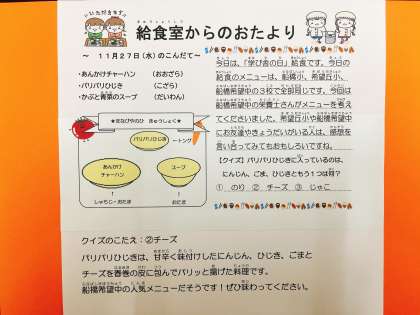 いただきます
給食室からのおたより
～ 11月27日(水)のこんだて～
・あんかけチャーハン (おおざら)
・パリパリひじき (こざら)
・かぶと青菜のスープ (だいわん)
★まなびやのひ きゅうしょく★
パリパリひじき
あんかけ
チャーハン
スープ
しゃもじ・おたま
おたま
今日は、「学び舎の日」給食です。今日の
給食のメニューは、船橋小、希望丘小、
船橋希望中の3校で全部同じです。今回は
船橋希望中の栄養士さんがメニューを考え
てくださいました。希望丘小や船橋希望中
にお友達やきょうだいがいる人は、感想を
言い合ってみてもおもしろいですね。
【クイズ】パリパリひじきに入っているのは、
にんじん、ごま、ひじきともう1つは何?
① のり ② チーズ ③ じゃこ
クイズのこたえ:②チーズ
パリパリひじきは、甘辛く味付けしたにんじん、ひじき、ごまと
チーズを春巻の皮に包んでパリッと揚げた料理です。
船橋希望中の人気メニューだそうです!ぜひ味わってください。